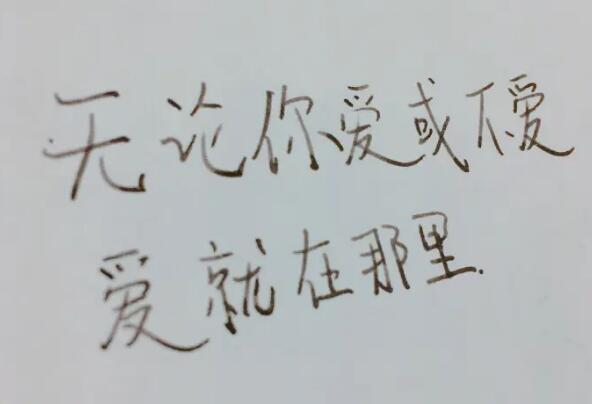 无论你爱或不爱
爱就在那里.